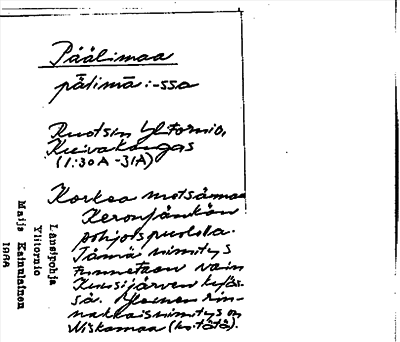 Päälimaa
pälimä :-ssa
Ruotsin Ylitornio,
Kuivakangas
(1:30A-31A)
Korkea metsämaa
Keronjänkän
pohjoispuolella.
Tämä nimitys
tunnetaan vain
Kuusijärven kyläs-
sä. Yleinen rin-
nakkaisnimitys on
Niskamaa (ks. tätä).
Länsipohja
Ylitornio
Maija Kainulainen
1966